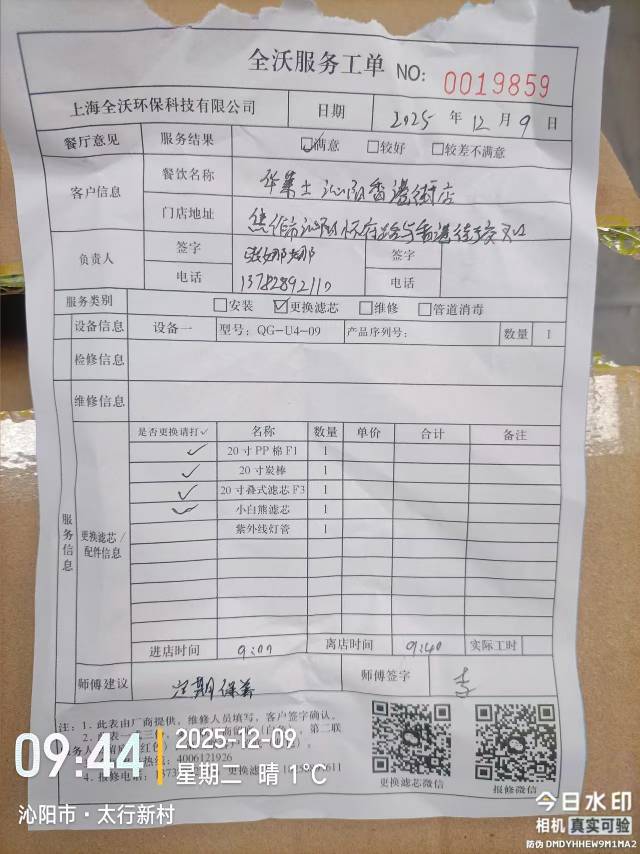 全沃服务工单 NO: 0019859
上海全沃环保科技有限公司 日期 2025 年 12 月 9 日
餐厅意见 服务结果 ☑满意 □较好 □较差不满意
客户信息 餐饮名称 华莱士沁阳香港街店
门店地址 焦作市沁阳怀府路与香港街交叉口
负责人 签字 签字
电话 13782892110 电话
服务类别 □安装 ☑更换滤芯 □维修 □管道消毒
设备信息 设备一 型号: QG-U4-09 产品序列号: 数量 1
检修信息
维修信息
服务信息 更换滤芯/配件信息
是否更换请打✓ 名称 数量 单价 合计 备注
✓ 20寸PP棉F1 1
✓ 20寸炭棒 1
✓ 20寸叠式滤芯F3 1
✓ 小白熊滤芯 1
紫外线灯管 1
进店时间 9:00 离店时间 9:40 实际工时
师傅建议 定期保养 师傅签字 李
注: 1. 此表由厂商提供, 维修人员填写, 客户签字确认。
2. 此表一式三 第二联
热线: 4006121926
4. 报修电话:
更换滤芯微信 报修微信
09:44 2025-12-09
星期二 晴 1℃
沁阳市·太行新村
今日水印
相机 真实可验
防伪 DMDYHHEW9M1MA2